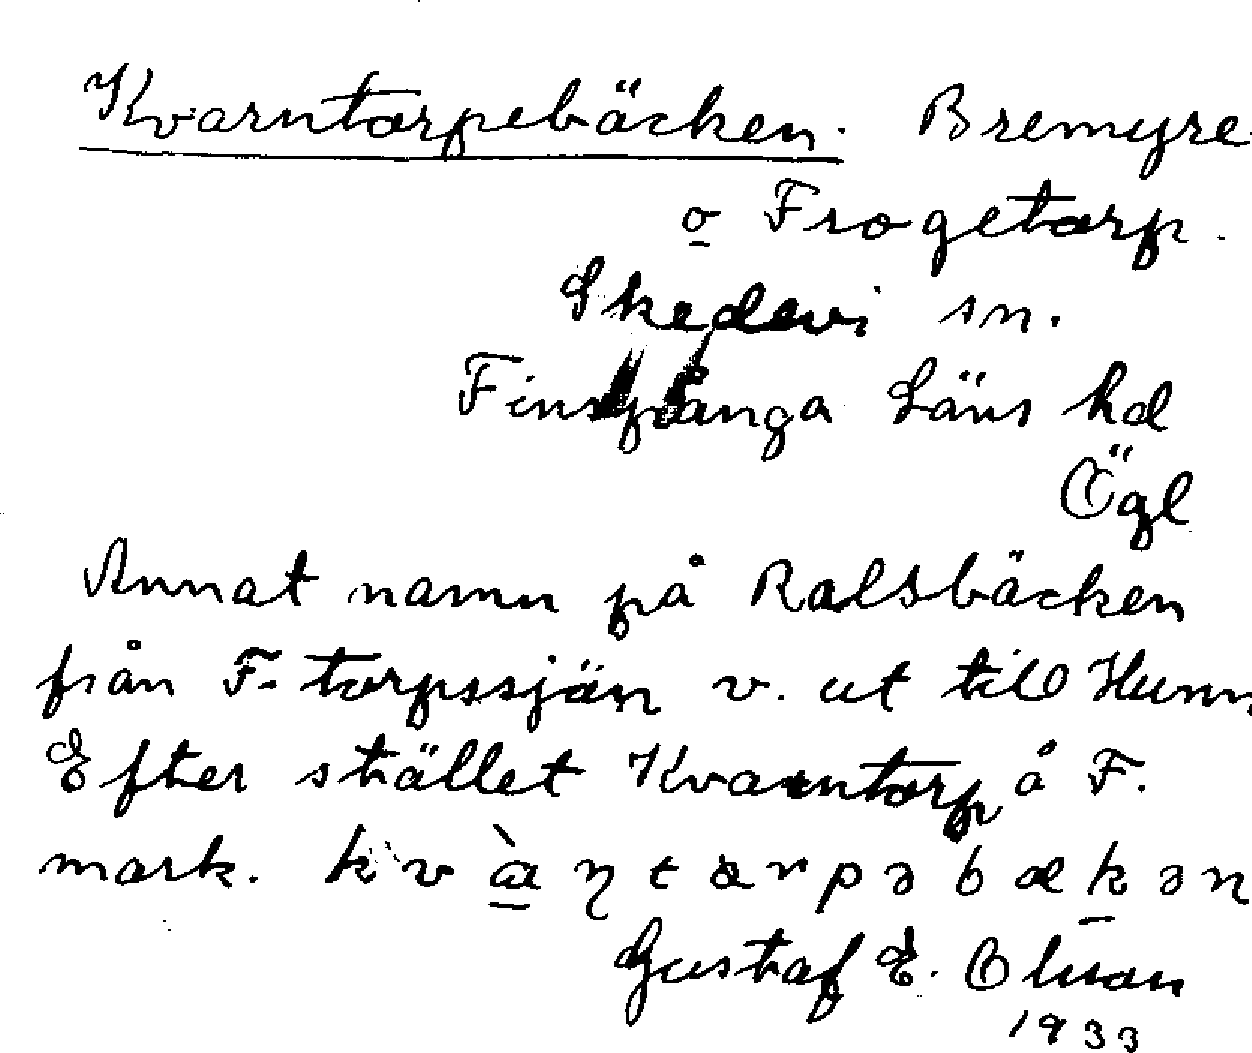 Kvarntorpebäcken. Bremyre
o Frogetorp.
Skedevi sn.
Finspånga Läns hd
Ögl
Annat namn på Ralsbäcken
från F-torpssjön v. ut till Hunn
Efter stället Kvarntorp å F.
mark.
Gustaf E. Olsson
1933